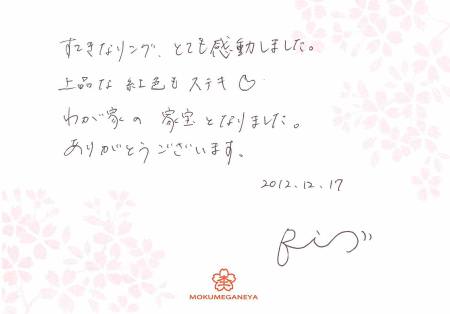 すてきなリング、とても感動しました。
上品な紅色もステキ♡
わが家の家宝となりました。
ありがとうございます。
2012.12.17
MOKUMEGANEYA